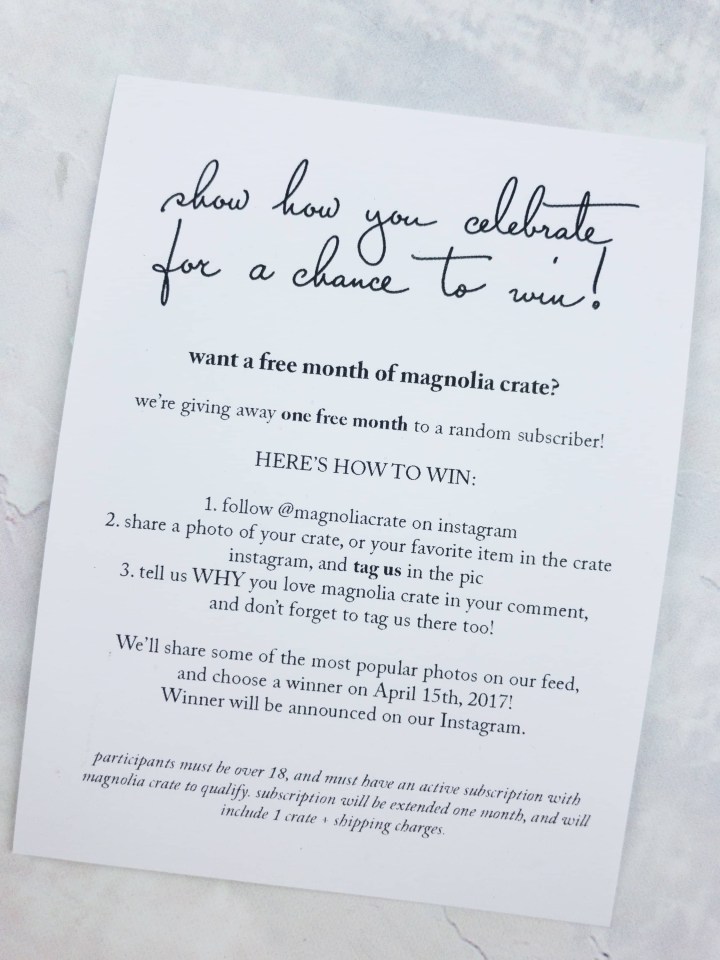 show how you celebrate
for a chance to win!
want a free month of magnolia crate?
we're giving away one free month to a random subscriber!
HERE'S HOW TO WIN:
1. follow @magnoliacrate on instagram
2. share a photo of your crate, or your favorite item in the crate
instagram, and tag us in the pic
3. tell us WHY you love magnolia crate in your comment,
and don't forget to tag us there too!
We'll share some of the most popular photos on our feed,
and choose a winner on April 15th, 2017!
Winner will be announced on our Instagram.
participants must be over 18, and must have an active subscription with
magnolia crate to qualify. subscription will be extended one month, and will
include 1 crate + shipping charges.